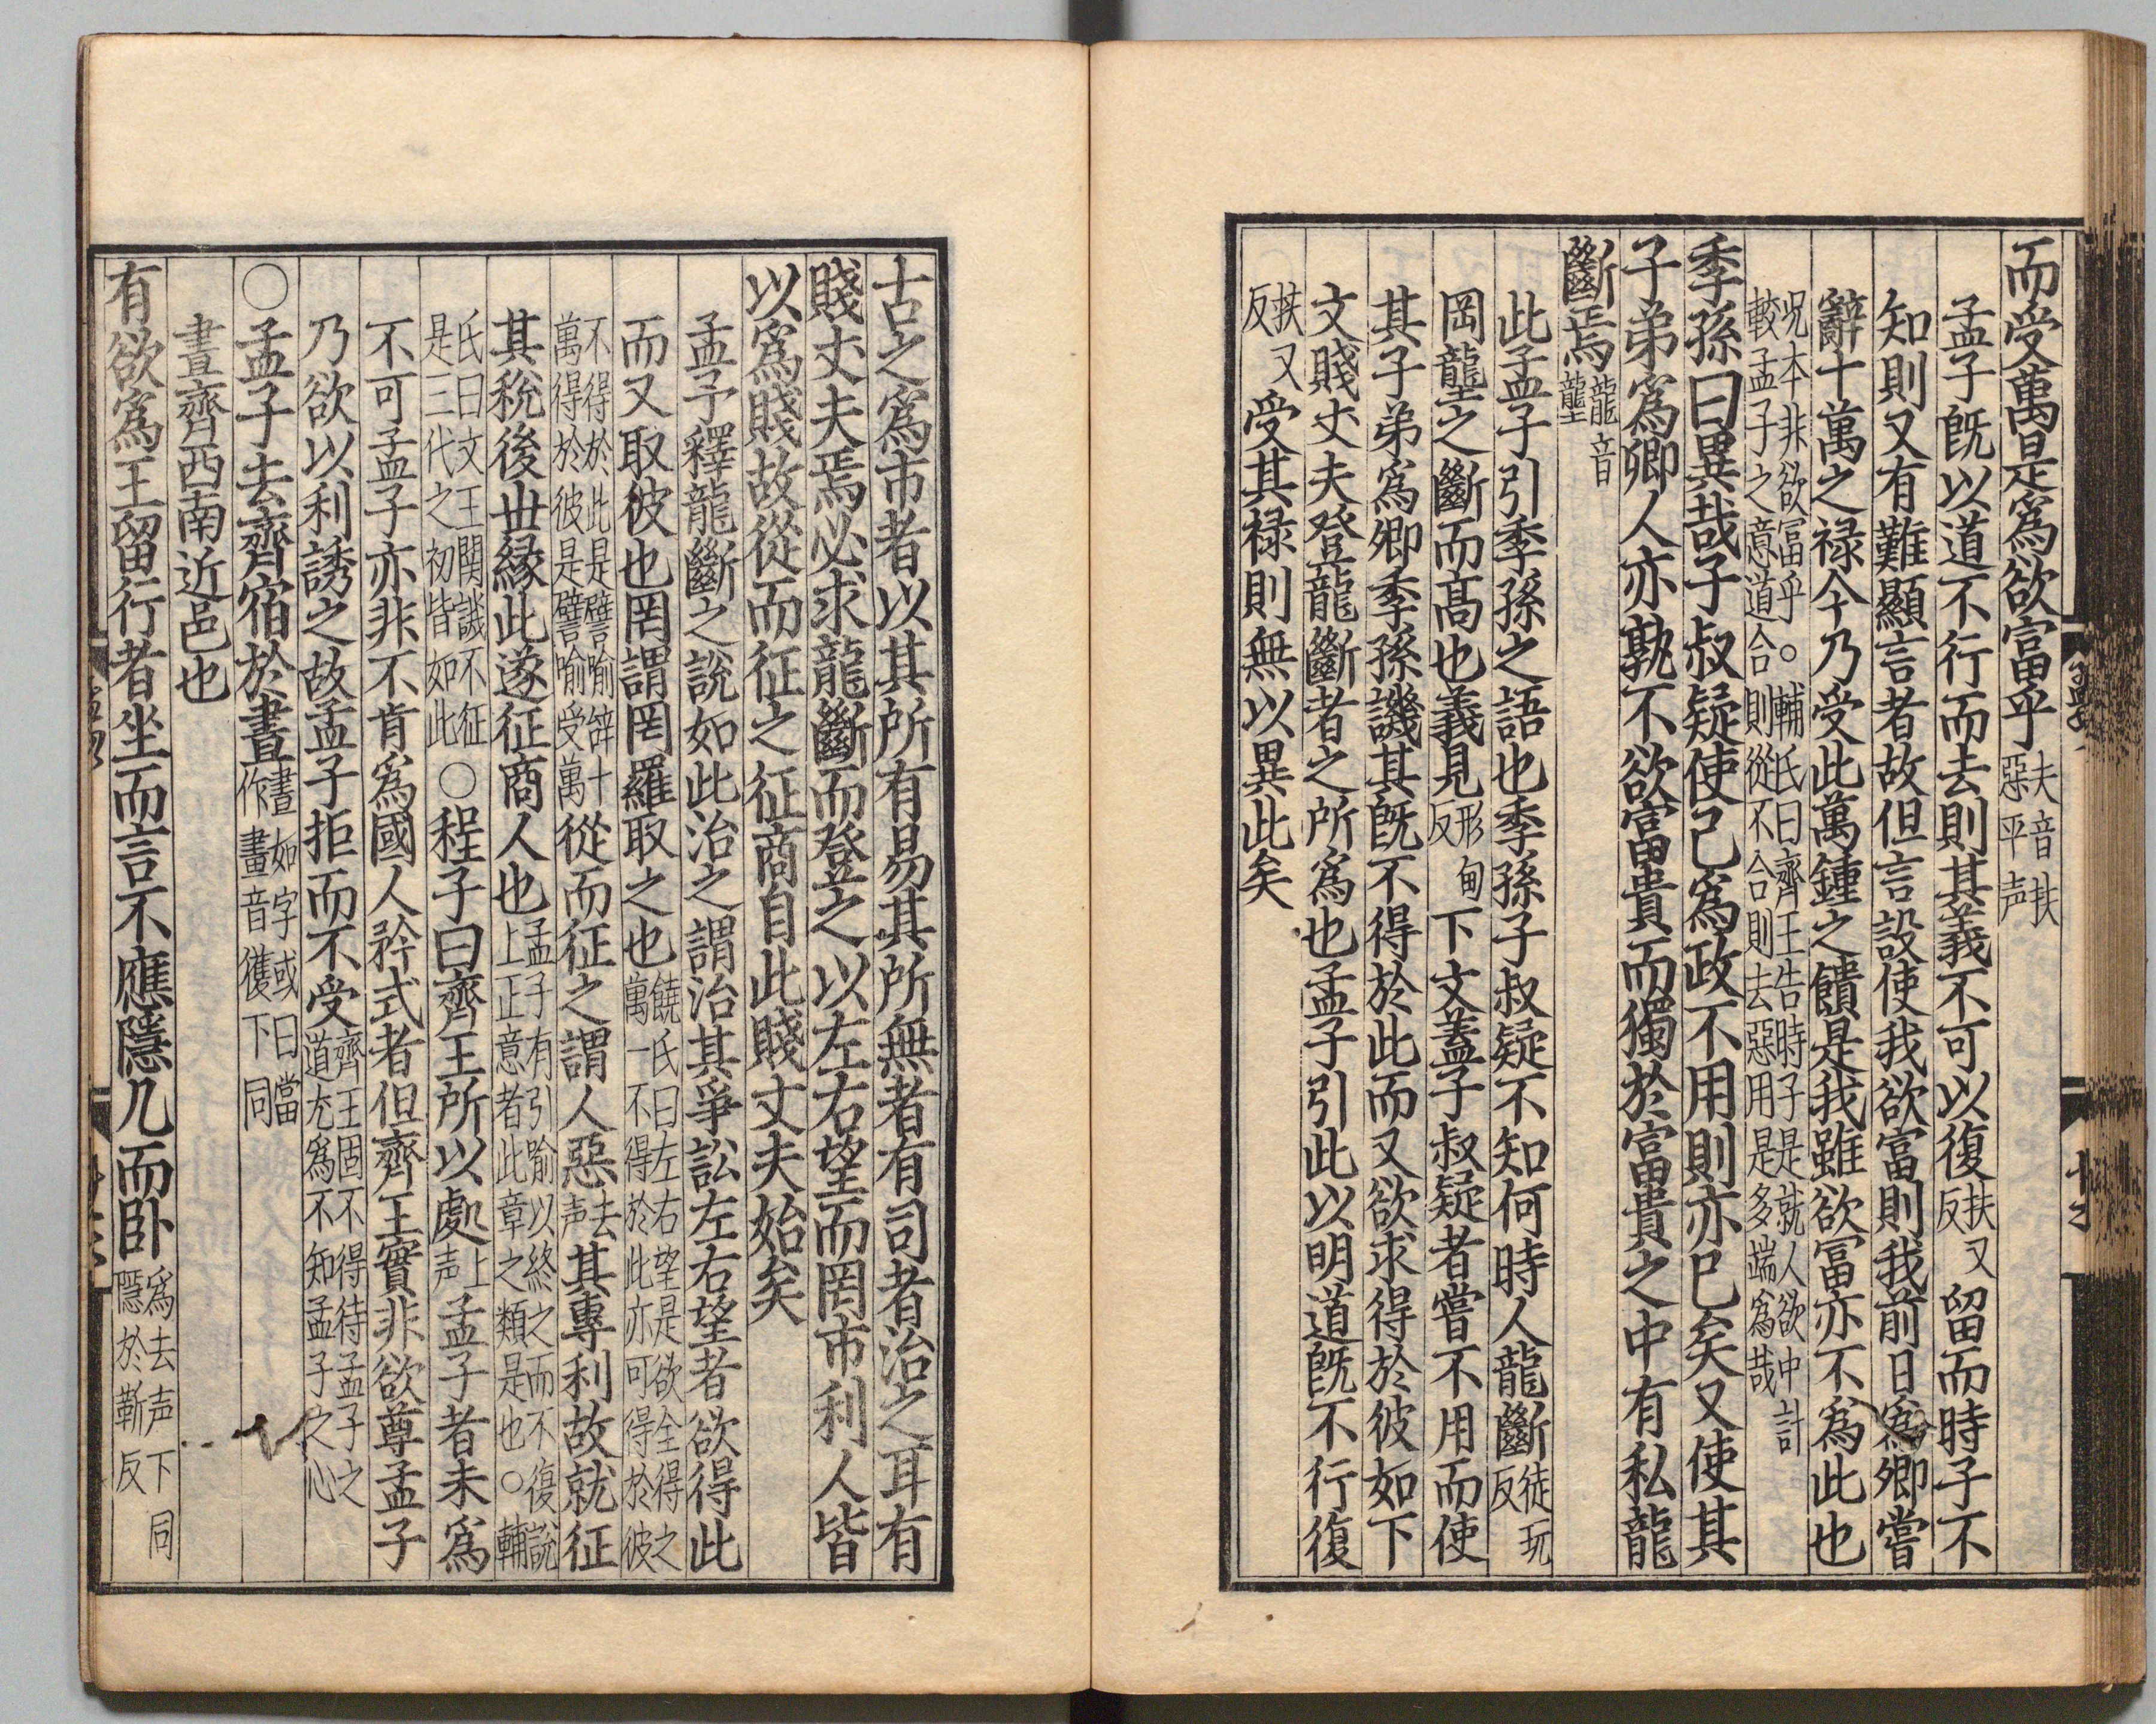 而受萬是爲欲富乎夫音扶惡平声
孟子既以道不行而去則其義不可以復扶又反留而時子不
知則又有難顯言者故但言設使我欲富則我前日爲卿嘗
辭十萬之禄今乃受此萬鍾之饋是我雖欲冨亦不爲此也
呪本非欲冨乎○輔氏曰齊王告時子是就人欲中計
較孟子之意道合則從不合則去惡用是多端爲哉
季孫曰異哉子叔疑使己爲政不用則亦已矣又使其
子弟爲卿人亦孰不欲富貴而獨於富貴之中有私龍
斷焉龍音壟
此孟子引季孫之語也季孫子叔疑不知何時人龍斷徒玩反
岡壟之斷而髙也義見形甸反下文蓋子叔疑者嘗不用而使
其子弟爲卿季孫譏其既不得於此而又欲求得於彼如下
文賤丈夫登龍斷者之所爲也孟子引此以明道既不行復
扶又反受其禄則無以異此矣
古之爲市者以其所有易其所無者有司者治之耳有
賤丈夫焉必求龍斷而登之以左右望而罔市利人皆
以爲賤故從而征之征商自此賤丈夫始矣
孟子釋龍斷之說如此治之謂治其爭訟左右望者欲得此
而又取彼也罔謂罔羅取之也饒氏曰左右望是欲全得之萬一不得於此亦可得於彼
不得於此是譬喻辭十萬得於彼是譬喻受萬從而征之謂人惡去声其專利故就征
其税後丗縁此遂征商人也孟子有引喻以終之而不復說上正意者此章之類是也○輔
氏曰文王関譏不征是三代之初皆如此○程子曰齊王所以處上声孟子者未爲
不可孟子亦非不肯爲國人矜式者但齊王實非欲尊孟子
乃欲以利誘之故孟子拒而不受齊王固不得待孟子之道尤爲不知孟子之心
○孟子去齊宿於晝晝如字或曰當作畫音獲下同
晝齊西南近邑也
有欲爲王留行者坐而言不應隱几而卧爲去声下同隱於靳反